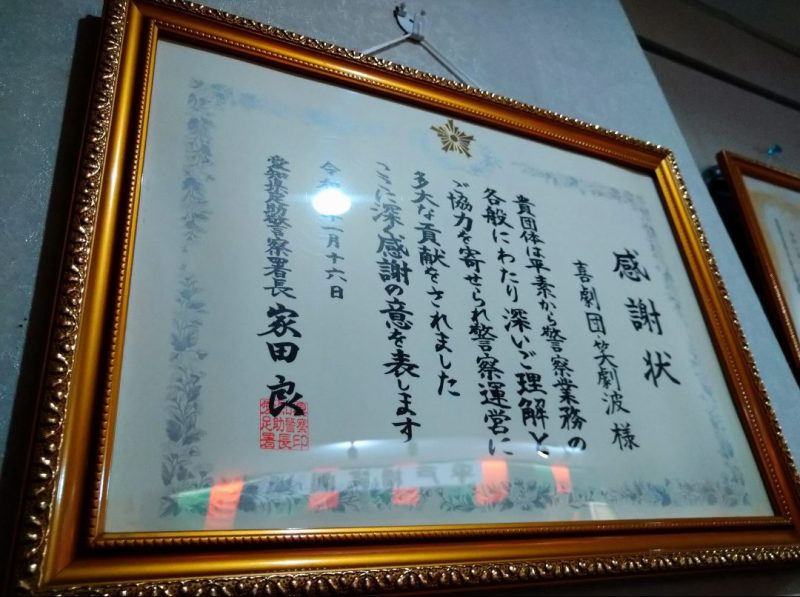 感謝状
喜劇団笑劇波様
貴団体は平素から警察業務の
各般にわたり深いご理解と
ご協力を寄せられ警察運営に
多大な貢献をされました
ここに深く感謝の意を表します
令 年一月十六日
愛知県足助警察署長 家田 良
愛知県足助警察署長印